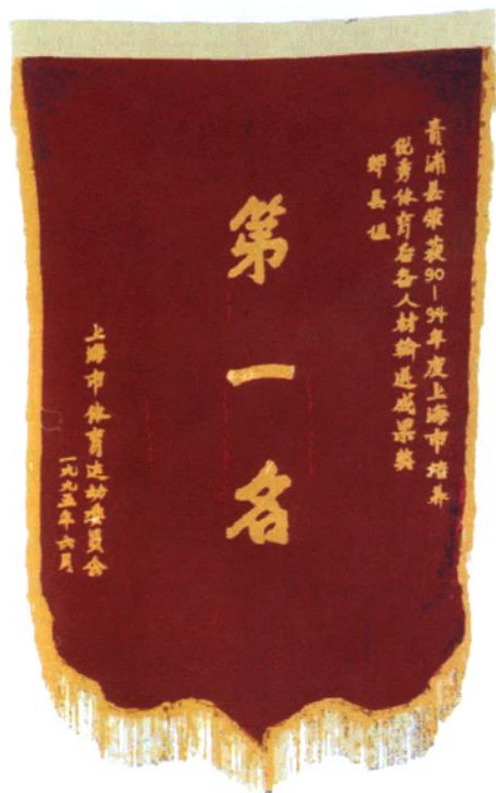 青浦县荣获90—94年度上海市培养
优秀体育后备人材输送成果奖
郊县组
第一名
上海市体育运动委员会
一九九五年六月